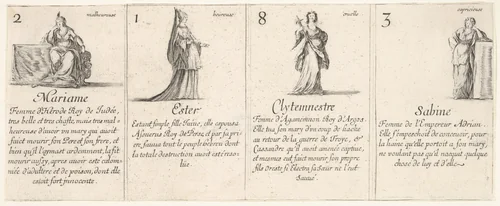 2 malheureuse
Mariame
Femme d'Hérode Roy de Judée,
tres belle et tres chaste, mais tres mal=
heureuse d'avoir un mary qui avoit
faict mourir son Pere et son frere, et
bien qu'il l'aymast ardamment, la fit
mourir aussy, apres avoir esté calom=
niée d'adultere et de poison, dont elle
estoit fort innocente
1 heureuse
Ester
Estant simple fille Juive, elle espousa
Assuerus Roy de Perse, et par sa pri=
ere, sauva tout le peuple hebrieu dont
la totale destruction avoit esté reso=
lüe
8 cruelle
Clytemnestre
Femme d'Agamemnon Roy d'Argos.
Elle tua son mary d'un coup de hache
au retour de la guerre de Troye, et
Cassandre qu'il avoit amenée captive,
et mesmes eut faict mourir son propre
fils Oreste si Electra sa sœur ne l'eut
sauvé
3 capricieuse
Sabine
Femme de l'Empereur Adrian.
Elle s'empeschoit de concevoir, pour
la haine qu'elle portoit a son mary,
ne voulant pas qu'il nacquit quelque
chose de luy et d'elle